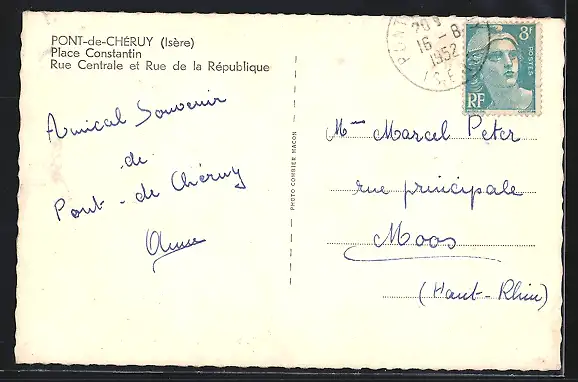 PONT-de-CHÉRUY (Isère)
Place Constantin
Rue Centrale et Rue de la République
Amical Souvenir
de
Pont-de Chéruy
PHOTO COMBIER MACON
20
16-8
1952
8F
POSTES
RF
Mme Marcel Peter
rue principale
Moos
(Haut-Rhin)